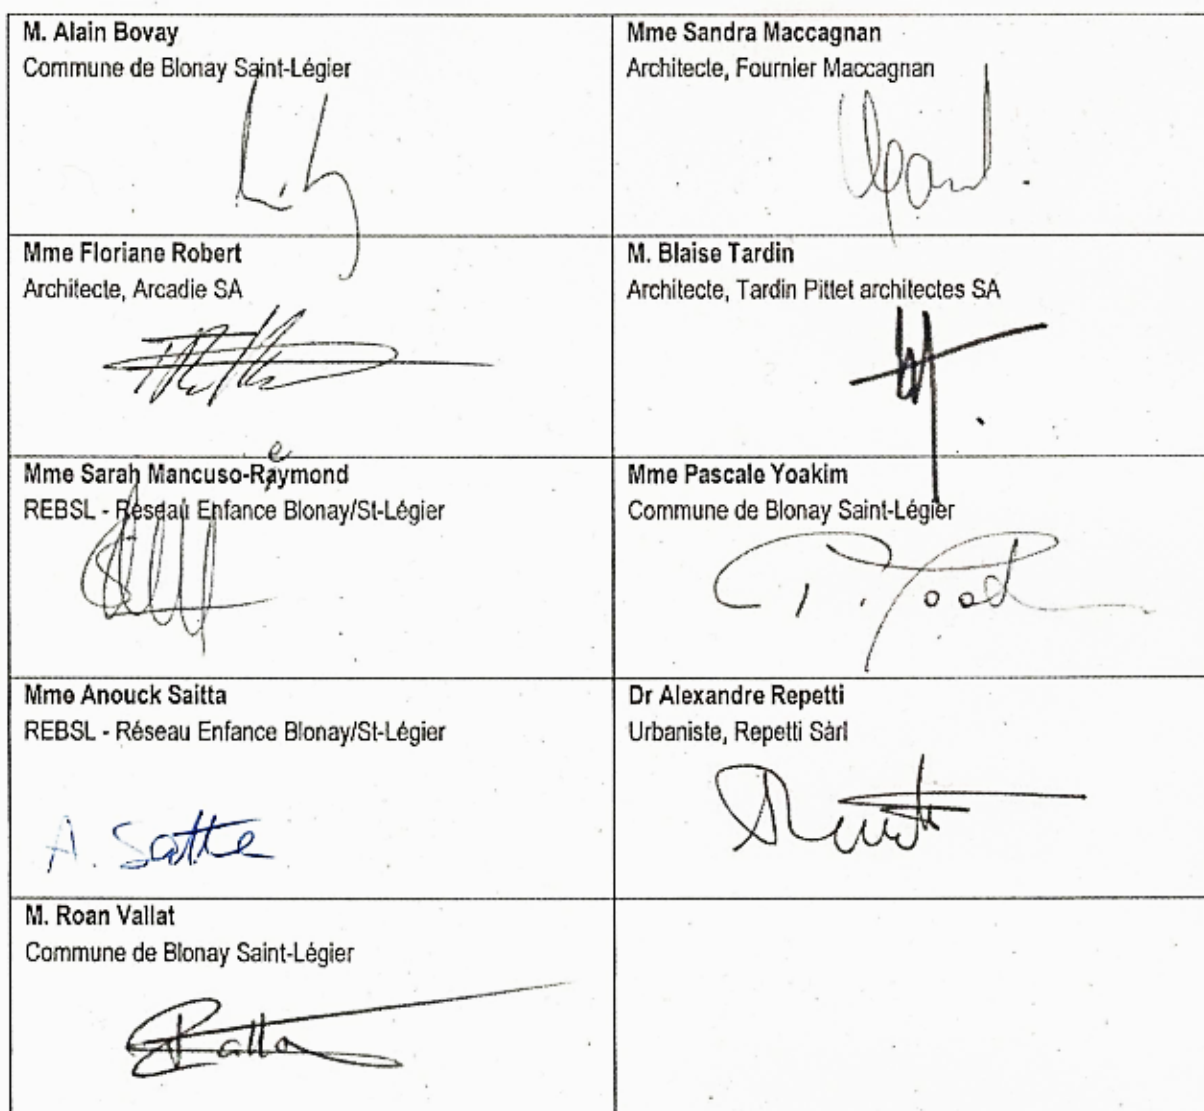 M. Alain Bovay
Commune de Blonay Saint-Légier
Mme Sandra Maccagnan
Architecte, Fournier Maccagnan
Mme Floriane Robert
Architecte, Arcadie SA
M. Blaise Tardin
Architecte, Tardin Pittet architectes SA
e
Mme Sarah Mancuso-Raymond
REBSL - Réseau Enfance Blonay/St-Légier
Mme Pascale Yoakim
Commune de Blonay Saint-Légier
Mme Anouck Saitta
REBSL - Réseau Enfance Blonay/St-Légier
A.
Dr Alexandre Repetti
Urbaniste, Repetti Sàrl
M. Roan Vallat
Commune de Blonay Saint-Légier